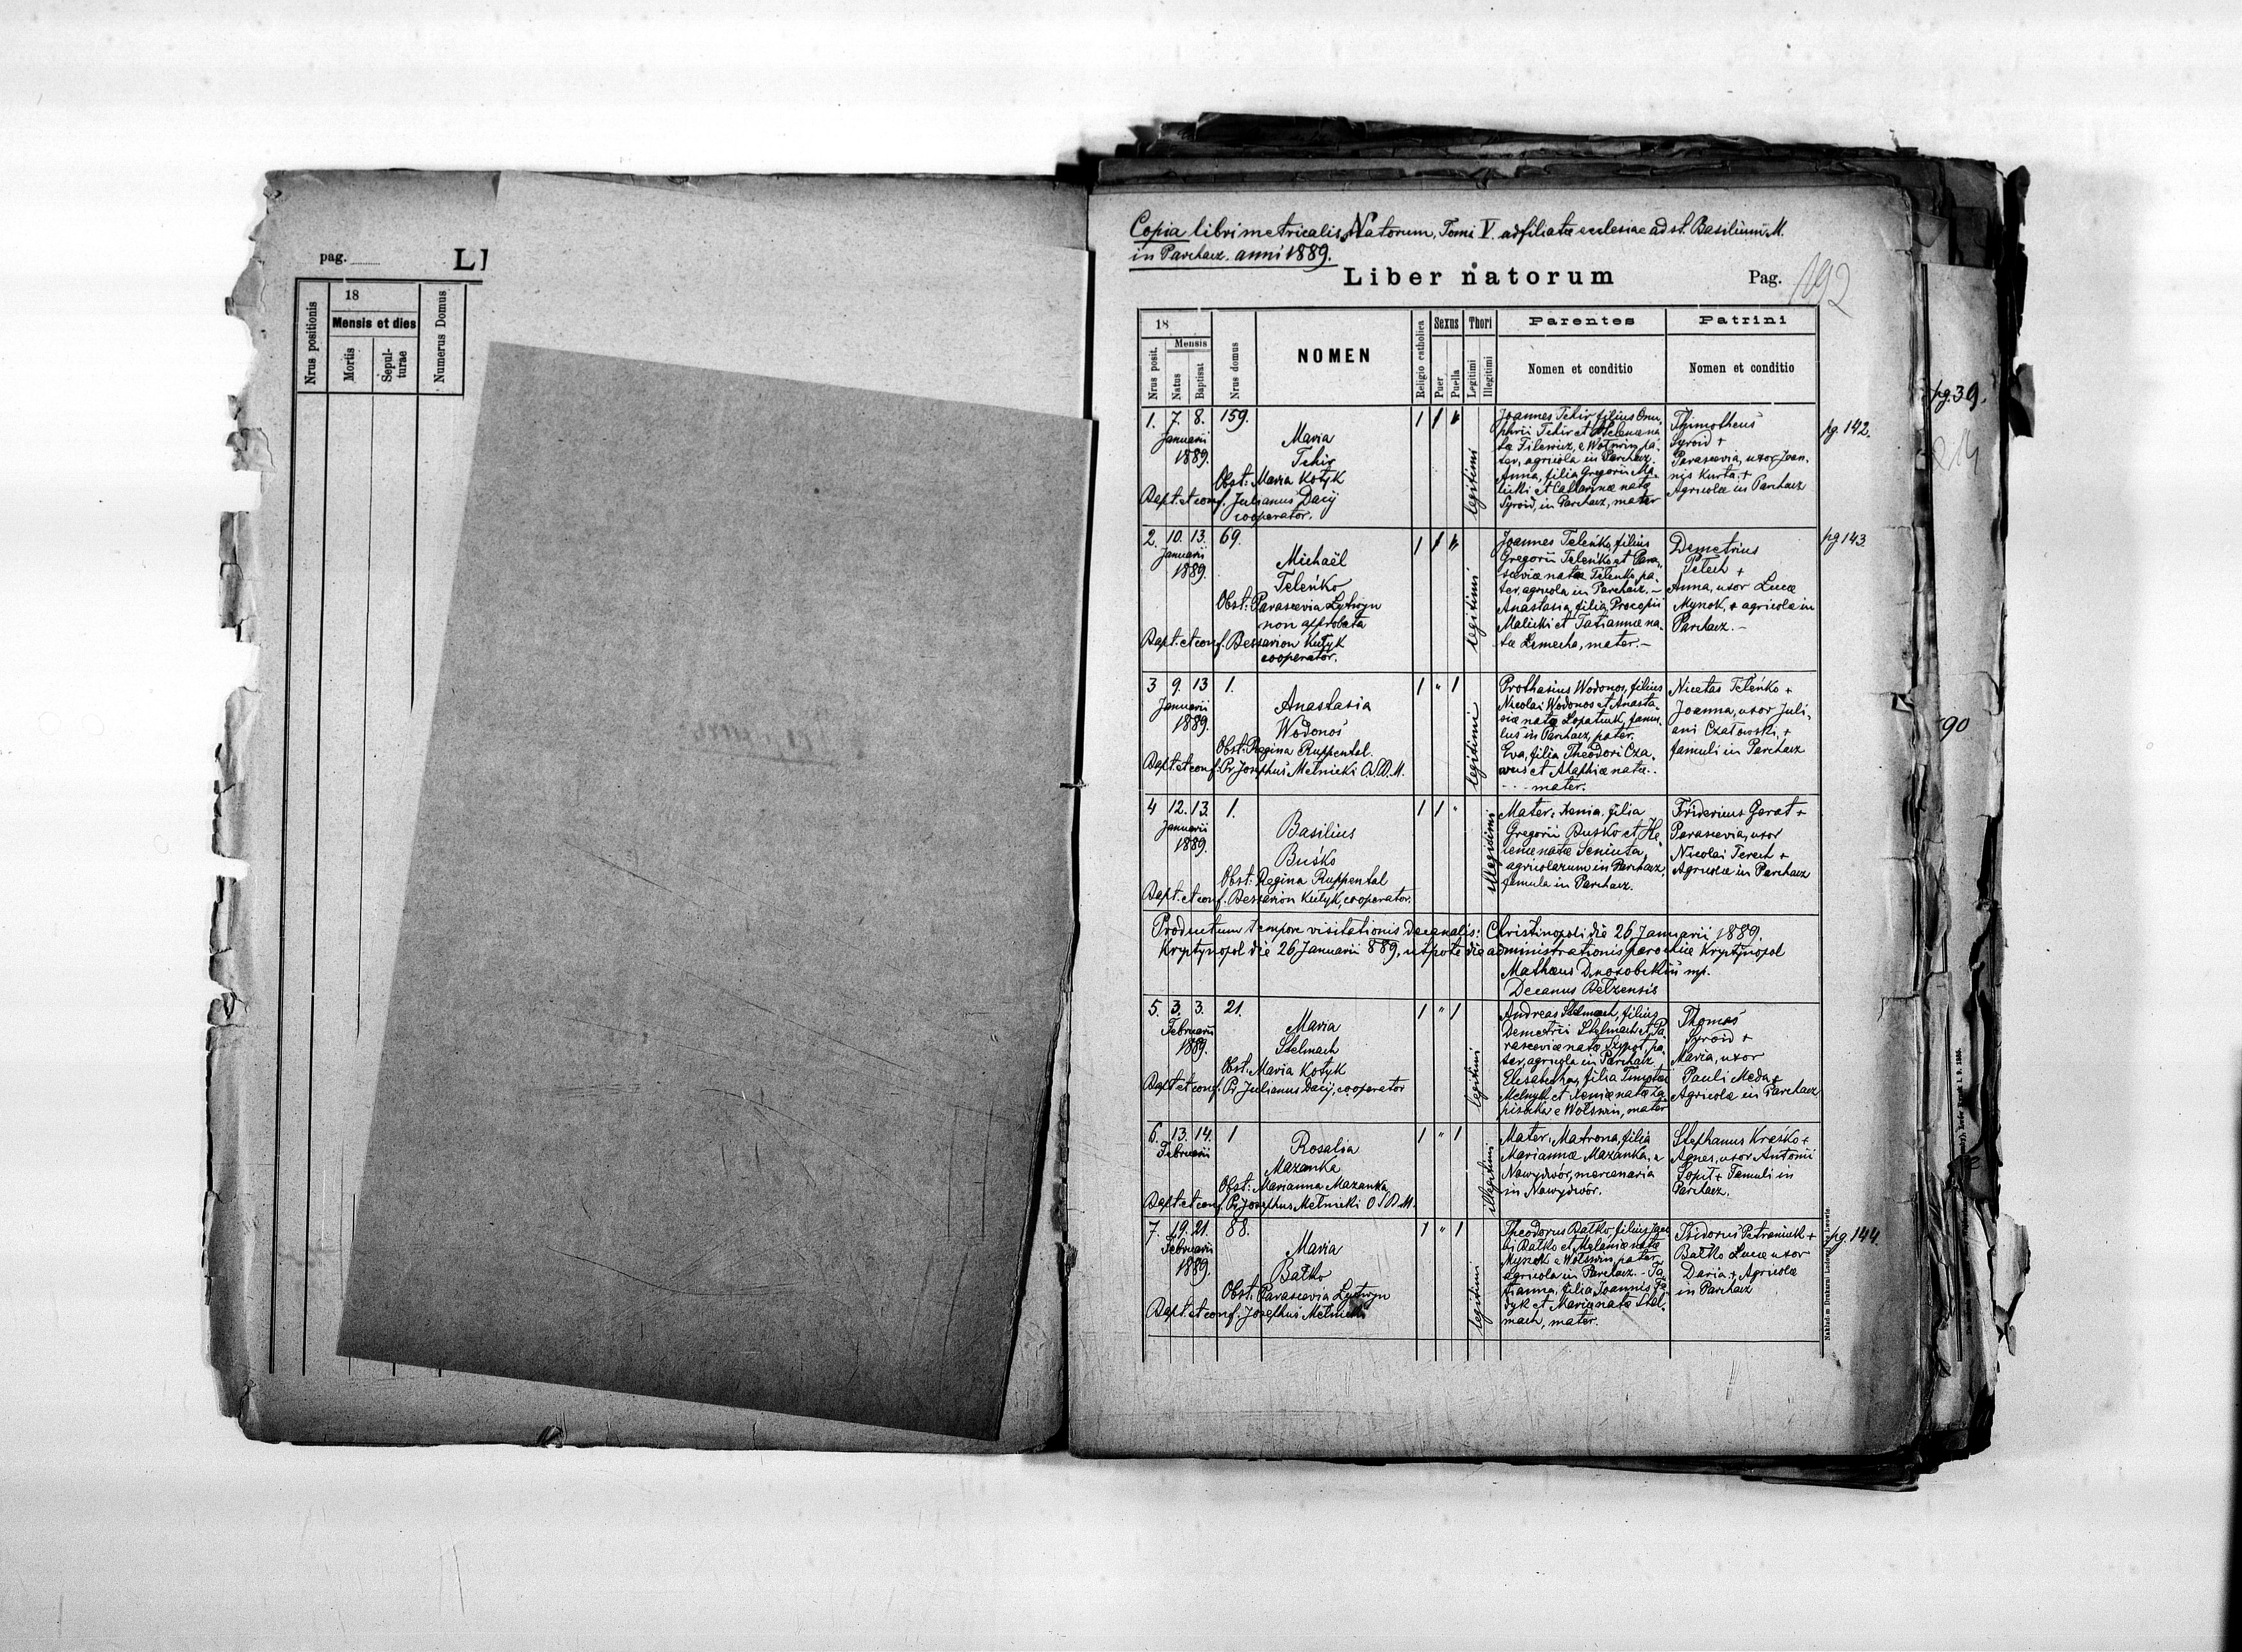 pag.
LI
Nrus positionis
18
Mensis et dies
Mortis
Sepul-
turae
Numerus Domus
Copia libri metricalis Natorum, Tomi V. adfiliatæ ecclesiae ad st. Basilium M.
in Parchacz. anni 1889.
Liber natorum
Pag. 192
18
Nrus posit.
Mensis
Natus
Baptisat
Nrus domus
NOMEN
Religio catholica
Sexus
Puer
Puella
Thori
Legitimi
Illegitimi
Parentes
Nomen et conditio
Patrini
Nomen et conditio
1. 7. 8. 159.
Januarii
1889.
Maria
Tchir
Obst: Maria Kotyk
Bapt. et conf. Julianus Dacij
cooperator.
legitimi
Joannes Tchir filius Onu-
phrii Tchir et Helenæ na-
tæ Filewicz, e Wolswin pa-
ter, agricola in Parchacz.
Anna, filia Gregorii Ma-
licki et Catharinæ natæ
Syroid, in Parchacz, mater
Thimotheus
Syroid +
Parascevia, uxor Joan-
nis Kurta +
Agricolæ in Parchacz
pg. 142.
2. 10. 13. 69.
Januarii
1889.
Michaël
Teleńko
Obst: Parascevia Lytwyn
non approbata
Bapt. et conf. Bessarion Kutyk
cooperator.
legitimi
Joannes Teleńko, filius
Gregorii Teleńko et Para-
sceviæ natæ Teleńko pa-
ter, agricola in Parchacz. –
Anastasia, filia Procopii
Malicki et Tatiannæ na-
tæ Lemecha, mater. –
Demetrius
Petech +
Anna, uxor Lucæ
Mynok, + agricolæ in
Parchacz. –
pg 143
3 9. 13 1.
Januarii
1889.
Anastasia
Wodonos
Obst: Regina Ruppental.
Bapt. et conf. Pr Josephus Melnicki O.S.B.M.
1 " 1
legitimi
Prothasius Wodonos, filius
Nicolai Wodonos et Anasta-
siæ natæ Lopatiuk, famu-
lus in Parchacz, pater.
Eva, filia Theodori Cza-
et Ahaphiæ natæ..
... mater.
Nicetas Teleńko +
Joanna, uxor Juli-
ani Czatowski, +
famuli in Parchacz
4 12. 13. 1.
Januarii
1889.
Basilius
Buśko
Obst: Regina Ruppental
Bapt. et conf. Bessarion Kutyk, cooperator.
1 1 "
illegitimi
Mater: Xenia, filia
Gregorii Busko et He-
lenæ natæ Seniuta,
agricolarum in Parchacz,
famula in Parchacz.
Fridericus Gerat +
Parascevia, uxor
Nicolai Terech +
Agricolæ in Parchacz
Productum tempore visitationis decanalis: Christinopoli die 26 Januarii 1889.
Krystynopol die 26 Januarii 889, utpote die administrationis parochiæ Krystynopol
Mathæus mp.
Decanus Belzensis
5. 3. 3. 21.
Februarii
1889.
Maria
Stelmach
Obst: Maria Kotyk
Bapt. et conf. Pr Julianus Dacij, cooperator
1 " 1
legitimi
Andreas Stelmach, filius
Demetrii Stelmach et Pa-
rasceviæ natæ Szypot, pa-
ter, agricola in Parchacz
Elisabetha, filia Timotei
Melnyk et Xeniæ natæ La-
e Wolswin, mater
Thomas
Syroid +
Maria, uxor
Pauli Meda +
Agricolæ in Parchacz
6. 13. 14. 1
Februarii
Rosalia
Mazanka
Obst: Marianna Mazanka
Bapt. et conf. Pr Josephus Melnicki O.S.B.M.
1 " 1
illegitimi
Mater: Matrona, filia
Mariannæ Mazanka, e
Nowydwór, mercenaria
in Nowydwór.
Stephanus Kraśko +
Agnes, uxor Antonii
Sopit + Famuli in
Parchacz.
7. 19. 21. 88.
Februarii
1889.
Maria
Batko
Obst: Parascevia Lytwyn
Bapt. et conf: Josephus Melnicki
1 " 1
legitimi
Theodorus Batko, filius Jaco-
bi Batko et Melaniæ natæ
Mynok e Wolswin, pater
agricola in Parchacz. – Ta-
tianna, filia Joannis
et Mariæ natæ Stel-
mach, mater.
Isidorus Petraniuk +
Batko Lucæ uxor
Daria + Agricolæ
in Parchacz
pg. 144
pg. 39.
90